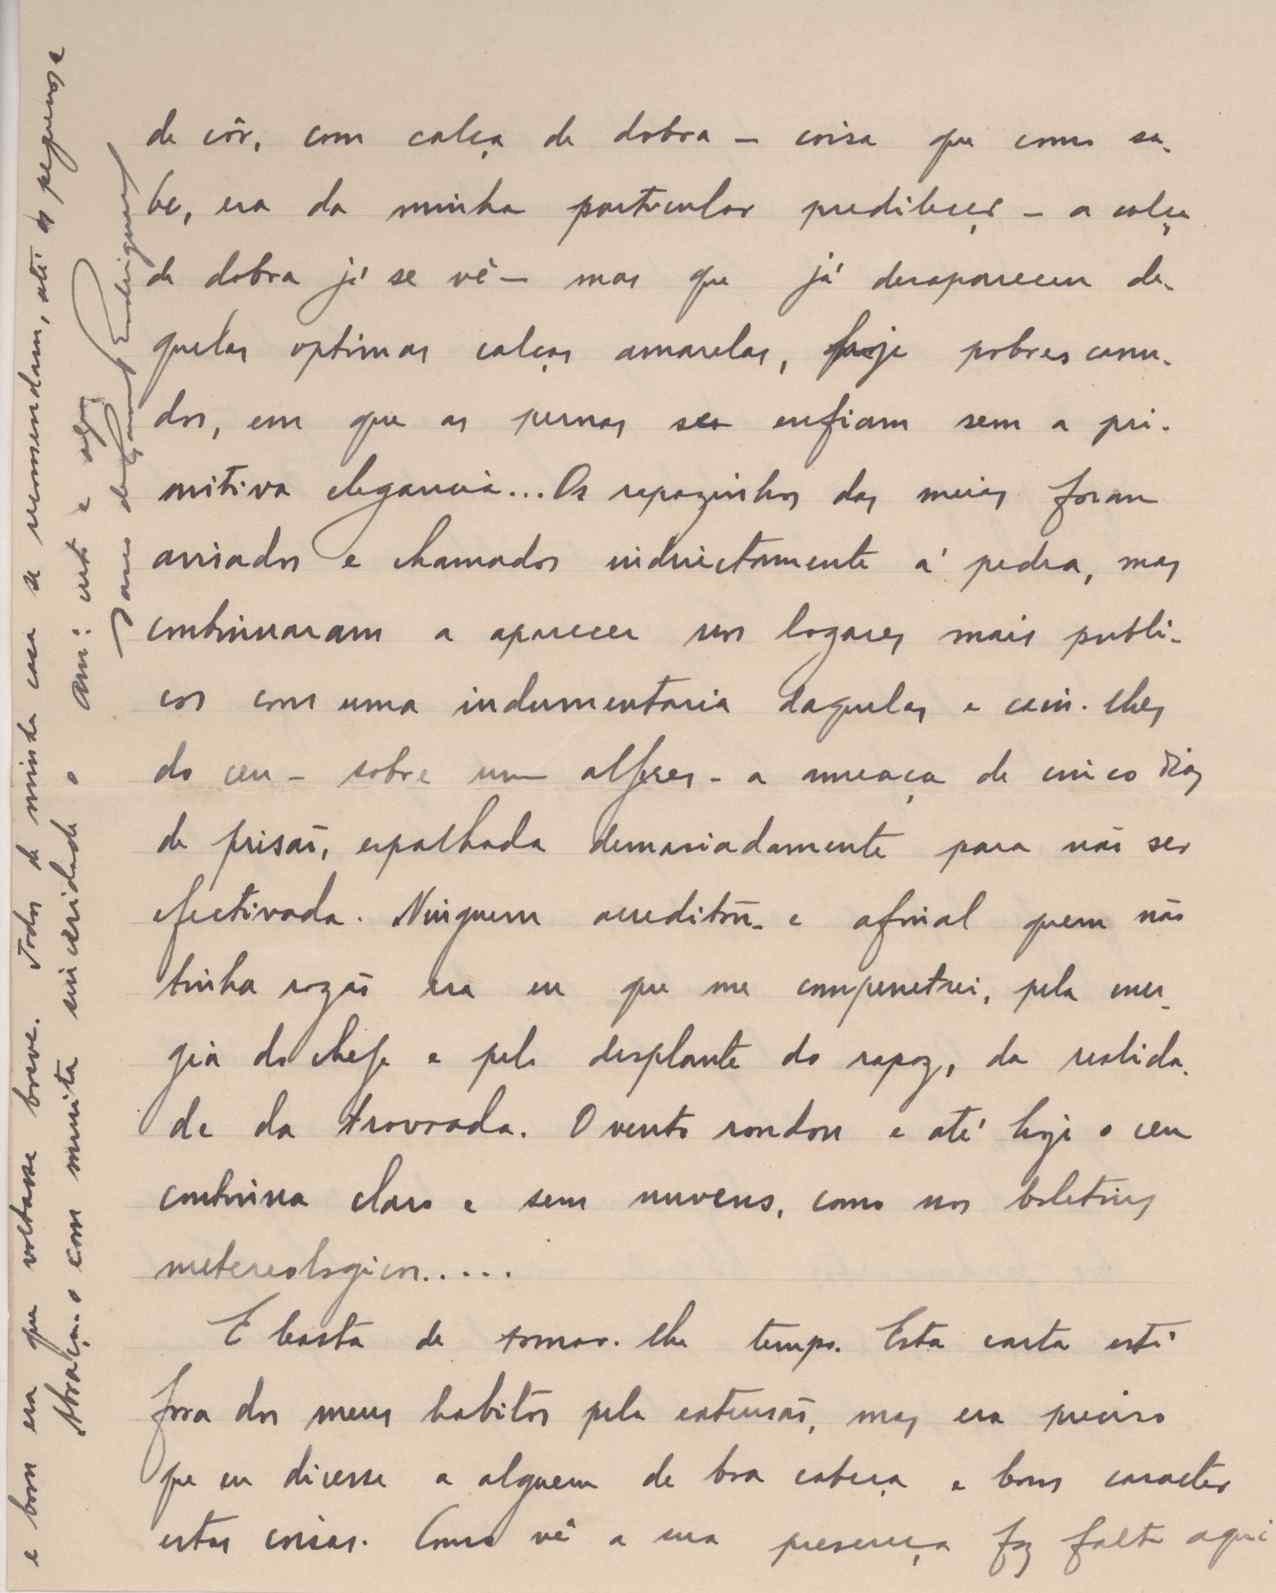 de côr, com calça de dobra – coisa que como sa-
be, era da minha particular predileção – a calça
de dobra já se vê – mas que já desapareceu da-
quelas optimas calças amarelas, hoje pobres canu-
dos, em que as pernas se enfiam sem a pri-
mitiva elegancia... Os rapazinhos das meias foram
arriados e chamados indirectamente á pedra, mas
continuaram a aparecer nos logares mais publi-
cos com uma indumentaria daquelas e caiu-lhes
do ceu – sobre um alferes – a ameaça de cinco dias
de prisão, espalhada demasiadamente para não ser
efectivada. Ninguem acreditou – e afinal quem não
tinha razão era eu que me compenetrei, pela ener-
gia do chefe e pelo desplante do rapaz, da realida-
de da trovoada. O vento rondou e até hoje o ceu
continua claro e sem nuvens, como nos boletins
metereologicos.....
E basta de tomar-lhe tempo. Esta carta está
fora dos meus habitos pela extensão, mas era preciso
que eu dicesse a alguem de boa cabeça e bom caracter
estas coisas. Como vê a sua presença faz falta aqui
e bom era que voltasse breve. Todos de minha casa se recomendam, até os pequenos e
Abraça-o com muita sinceridade o
am: certo e obgº